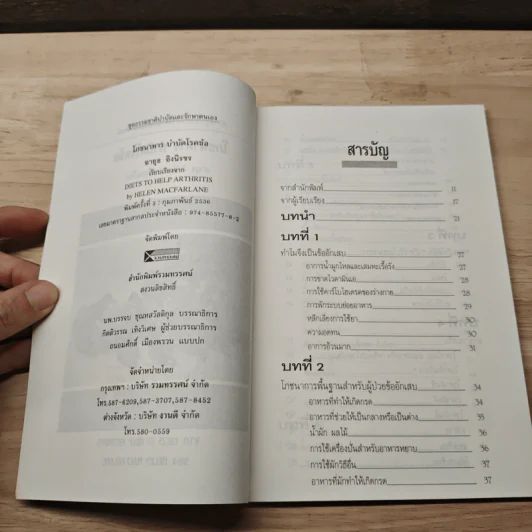 ชุดธรรมชาติบำบัดและรักษาตนเอง
โภชนาหาร บำบัดโรคข้อ
อายุธ อิงนิรชร
เรียบเรียงจาก
DIETS TO HELP ARTHRITIS
by HELEN MACFARLANE
พิมพ์ครั้งที่ 3 : กุมภาพันธ์ 2536
เลขมาตรฐานสากลประจำหนังสือ : 974-85577-6-2
จัดพิมพ์โดย
รวมทรรศน์
สำนักพิมพ์รวมทรรศน์
สงวนลิขสิทธิ์
นพ.บรรจบ ชุณหสวัสดิกุล บรรณาธิการ
กิตติวรรณ เทิงวิเศษ ผู้ช่วยบรรณาธิการ
ถนอมศักดิ์ เมืองพรวน แบบปก
จัดจำหน่ายโดย
กรุงเทพฯ : บริษัท รวมทรรศน์ จำกัด
โทร.587-6209,587-3707,587-8452
ต่างจังหวัด : บริษัท งานดี จำกัด
โทร.580-0559
สารบัญ
จากสำนักพิมพ์ 11
จากผู้เรียบเรียง 17
บทนำ 21
บทที่ 1
ทำไมจึงเป็นข้ออักเสบ 27
อาการน้ำมูกไหลและเสมหะเรื้อรัง 27
การขาดไวตามินเอ 28
การใช้คาร์โบไฮเดรตของร่างกาย 28
การพักระบบย่อยอาหาร 29
หลีกเลี่ยงการใช้ยา 30
ความอดทน 30
อาการอ้วนมาก 31
บทที่ 2
โภชนาการพื้นฐานสำหรับผู้ป่วยข้ออักเสบ 34
อาหารที่ทำให้เกิดกรด 34
อาหารที่ช่วยให้เป็นกลางหรือเป็นด่าง 35
น้ำผัก ผลไม้ 36
การใช้เครื่องปั่นสำหรับอาหารหยาบ 36
การใช้ผักวิธีอื่น 37
อาหารที่มักทำให้เกิดกรด 37